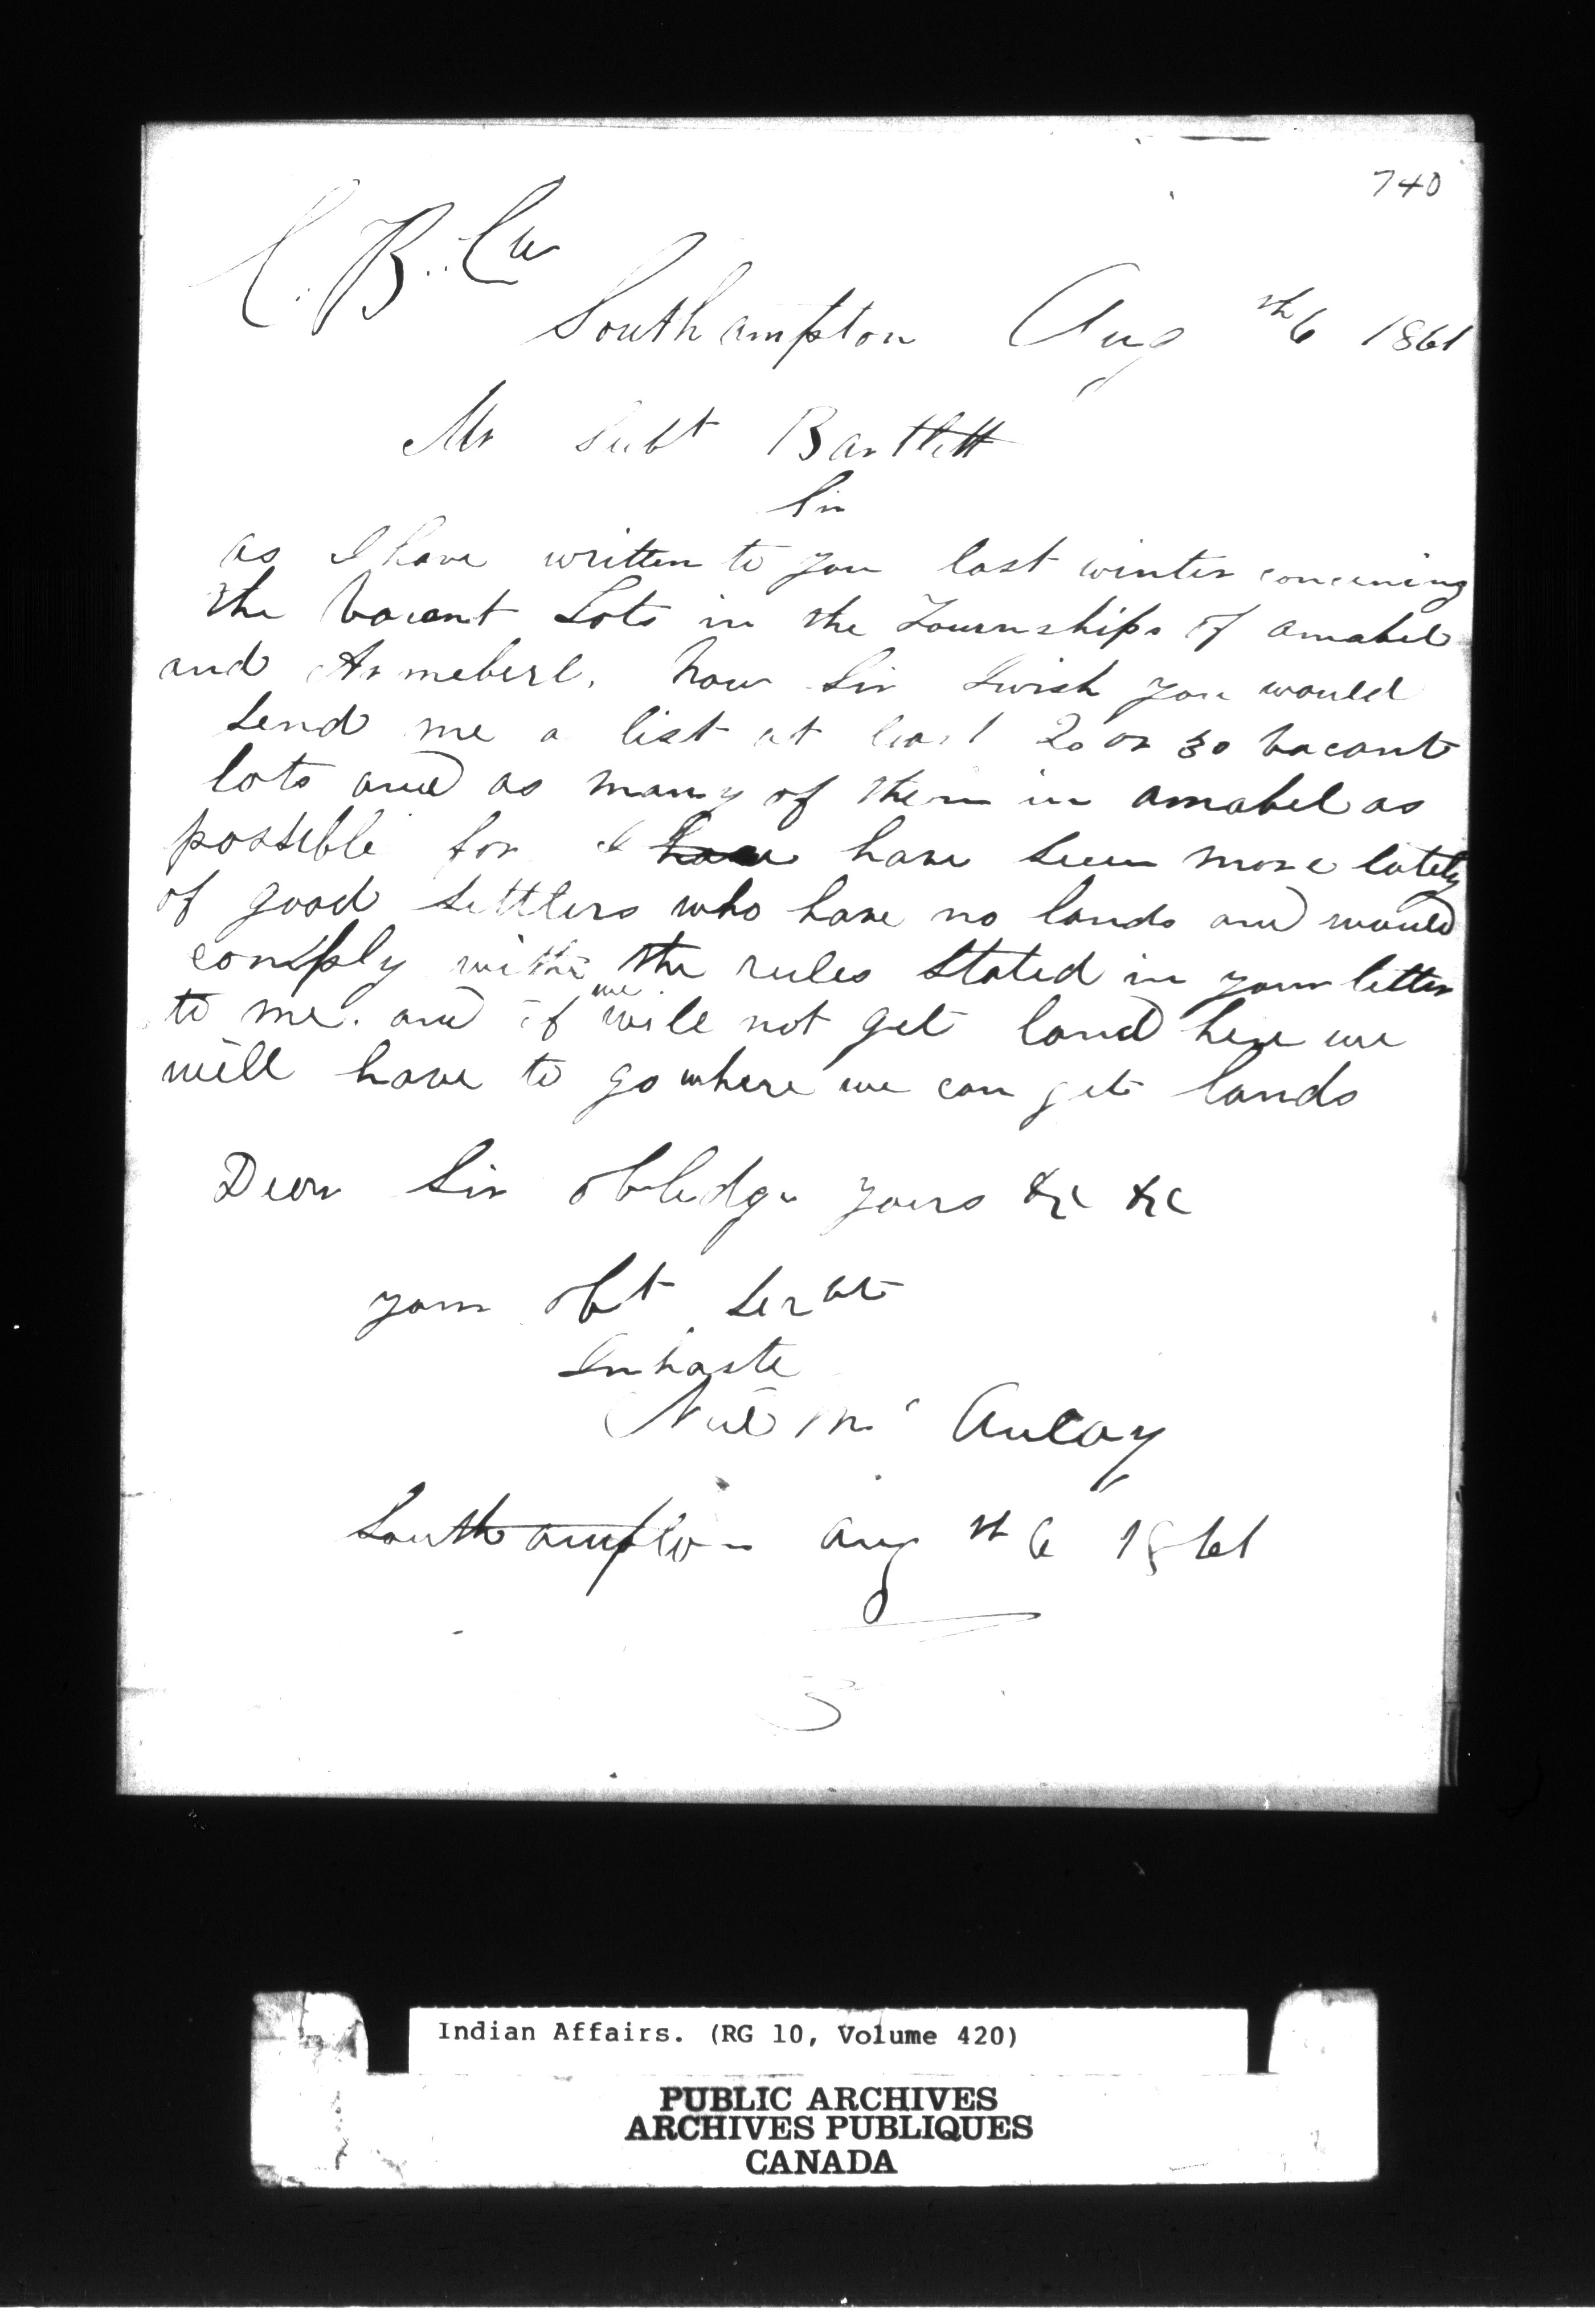 740
C. B. Cw
Southampton Aug th 6 1861
Mr Supt Bartlett
Sir
as I have written to you last winter concerning
the vacant Lots in the Townships of amabel
and now Sir I wish you would
send me a list at least 20 or 30 vacant
lots and as many of them in amabel as
possible for I have have seen more lately
of good settlers who have no lands and would
comply with the rules stated in your letter
to me. and if we will not get land here we
will have to go where we can get lands
Dear Sir obledge yours &c &c
your obt Servt
In haste
Neil Mc Aulay
Southampton aug th 6 1861
Indian Affairs. (RG 10, Volume 420)
PUBLIC ARCHIVES
ARCHIVES PUBLIQUES
CANADA